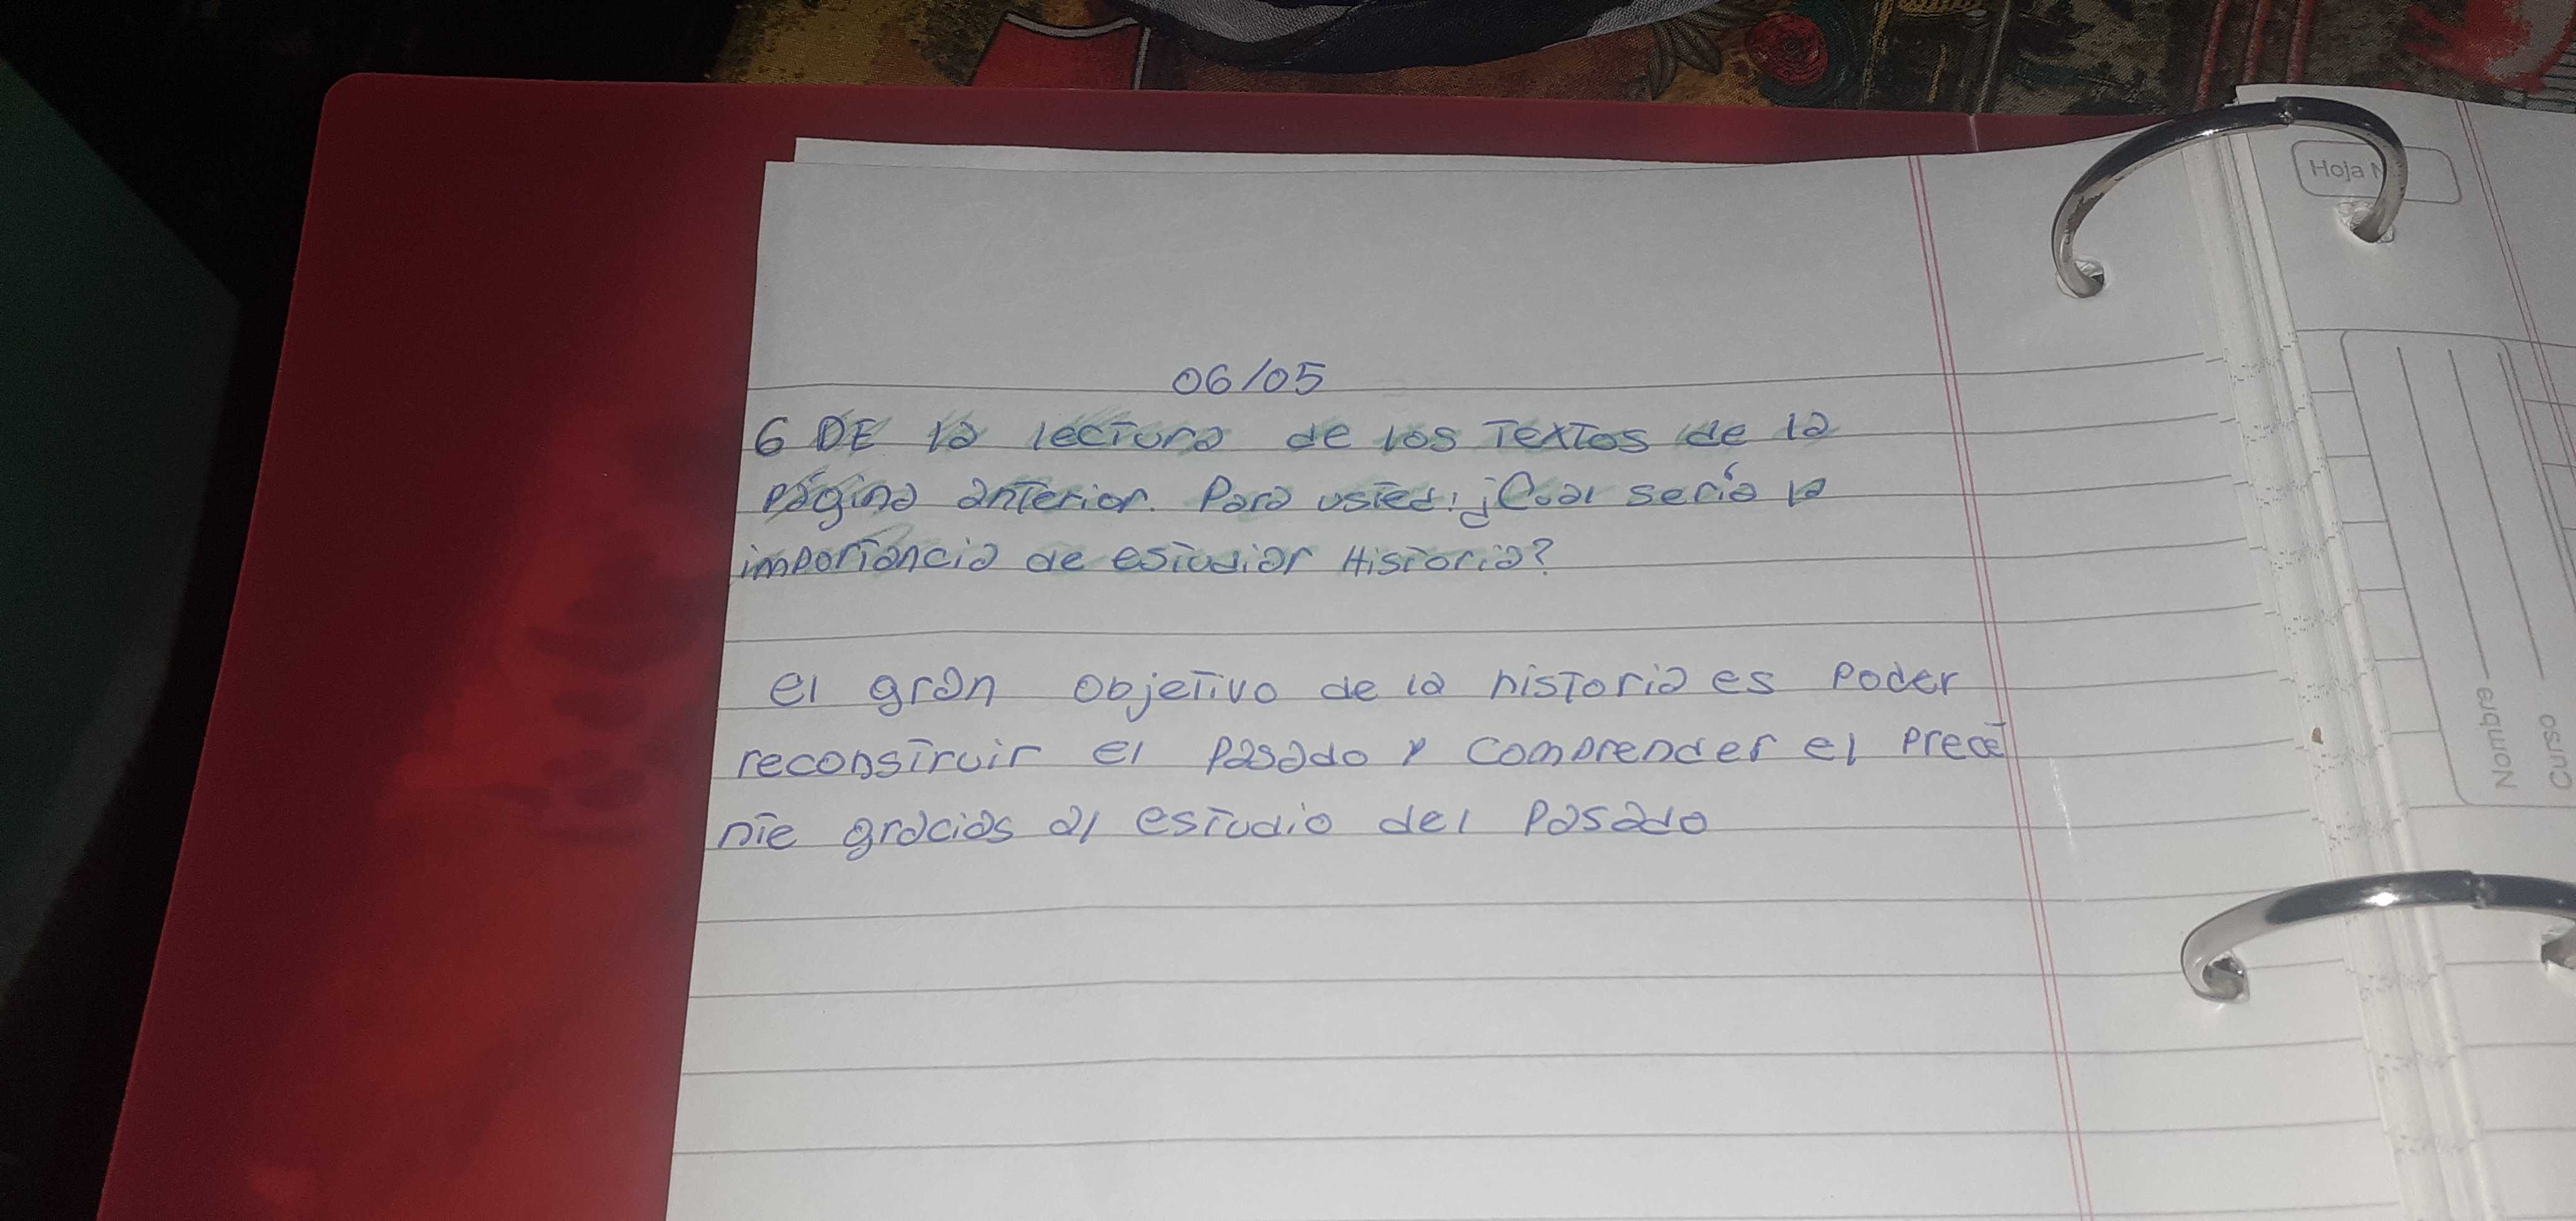 06/05
6 DE la lectura de los Textos de la
página anterior. Para usted: ¿Cual sería la
importancia de estudiar Historia?
el gran objetivo de la historia es poder
reconstruir el pasado y comprender el prece
nte gracias al estudio del pasado
Hoja N
Nombre
Curso